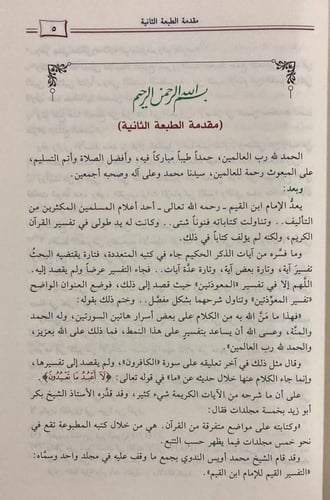 مقدمة الطبعة الثانية
٥
بسم الله الرحمن الرحيم
(مقدمة الطبعة الثانية)
الحمد لله رب العالمين، حمداً طيباً مباركاً فيه، وأفضل الصلاة وأتم التسليم،
على المبعوث رحمة للعالمين، سيدنا محمد وعلى آله وصحبه أجمعين.
وبعد:
يعدُّ الإمام ابن القيم ـ رحمه الله تعالى ـ أحد أعلام المسلمين المكثرين من
التأليف.. وتناولت كتاباته فنوناً شتى.. وكانت له يد طولى في تفسير القرآن
الكريم، ولكنه لم يؤلف كتاباً في ذلك.
وما فسَّره من آيات الذكر الحكيم جاء في كتبه المتعددة، فتارة يقتضيه البحثُ
تفسيرَ آية، وتارة بعض آية، وتارة عدَّة آيات.. فجاء التفسير عرضاً ولم يقصد إليه.
اللَّهم إلا في تفسير «المعوذتين» حيث قصد إلى ذلك، فوضع العنوان الواضح
«تفسير المعوِّذتين» وتناول شرحهما بشكل مفصَّل.. وختم ذلك بقوله:
«فهذا ما منَّ الله به من الكلام على بعض أسرار هاتين السورتين، وله الحمد
والمنَّة، وعسى الله أن يساعد بتفسيرٍ على هذا النمط، فما ذلك على الله بعزيز،
والحمد لله رب العالمين».
وقال مثل ذلك في آخر تعليقه على سورة «الكافرون»، ولم يقصد إلى تفسيرها،
وإنما جاء الكلام عنها خلال حديثه عن «ما» في قوله تعالى: ﴿لَا أَعْبُدُ مَا تَعْبُدُونَ﴾.
على أن ما شرحه من الآيات الكريمة شيء كثير، وقد قدَّره الأستاذ الشيخ بكر
أبو زيد بخمسة مجلدات فقال:
«وكتابته على مواضع متفرقة من القرآن. هي من خلال كتبه المطبوعة تقع في
نحو خمس مجلدات فيما يظهر حسب التتبع.
وقد قام الشيخ محمد أويس الندوي بجمع ما وقف عليه في مجلد واحد وسمَّاه:
«التفسير القيم للإمام ابن القيم».